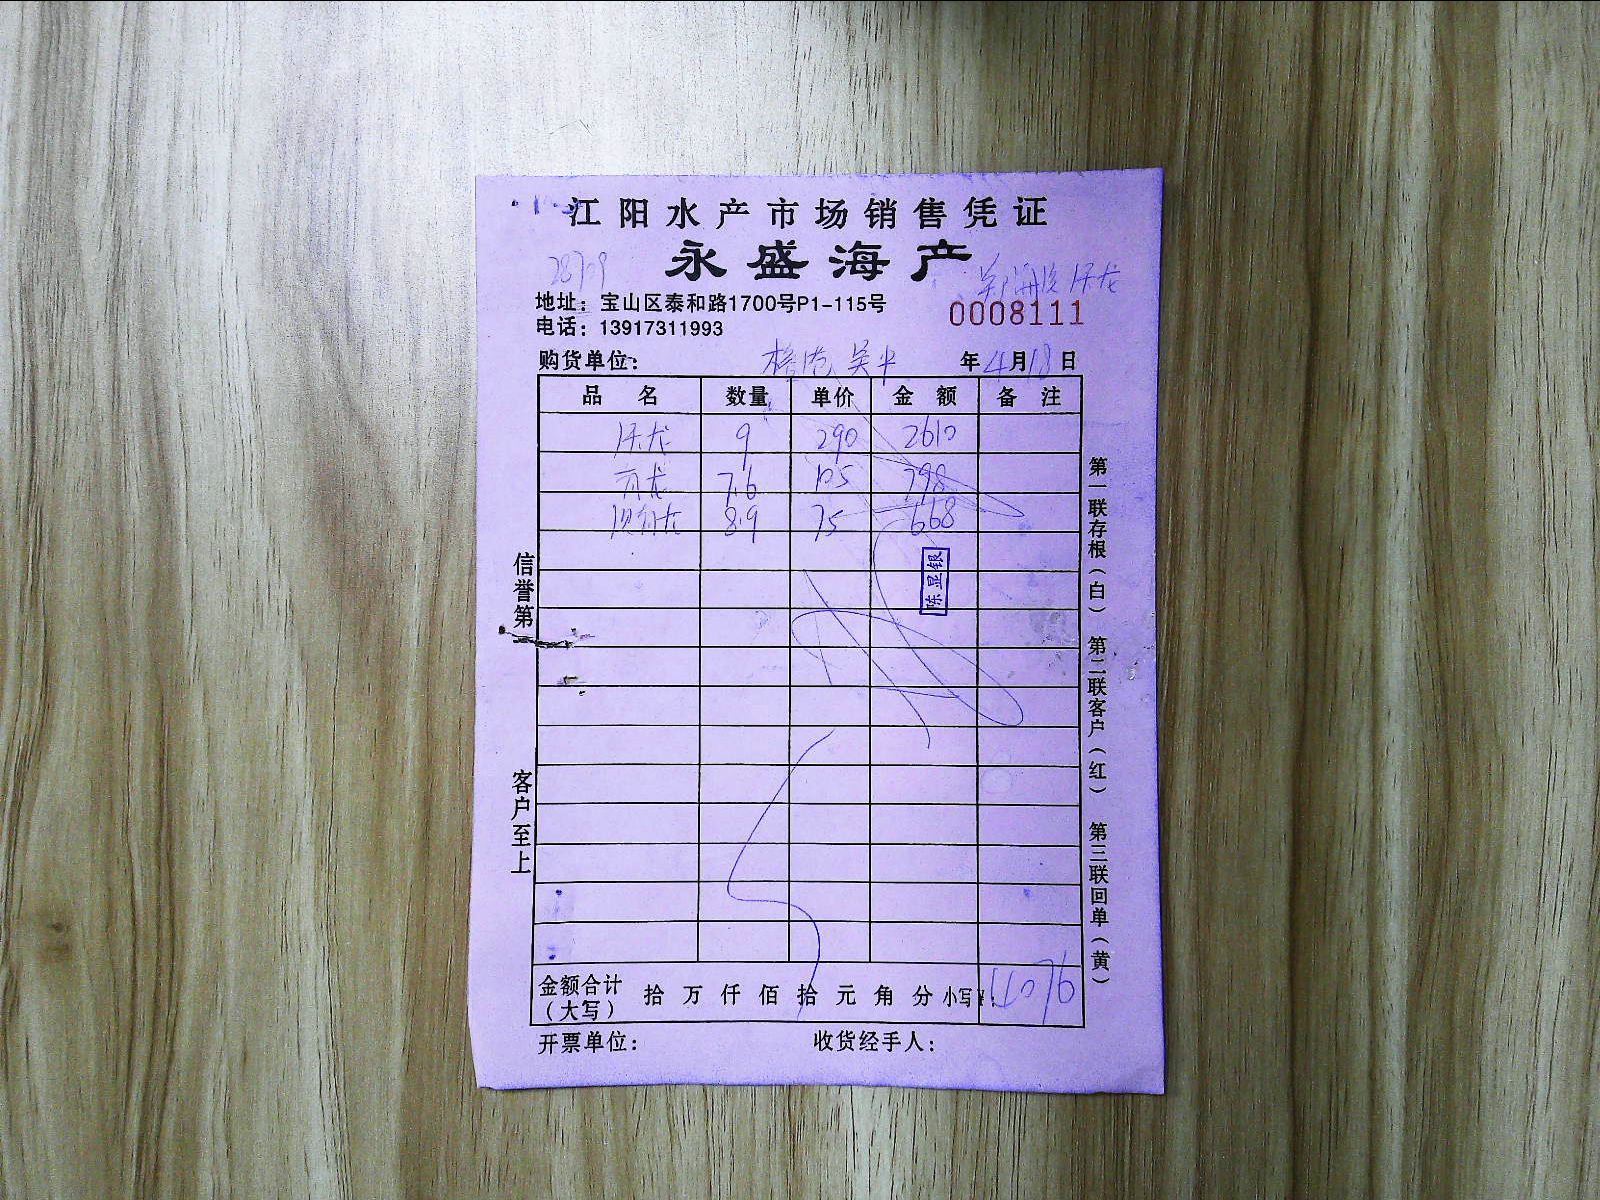 江阳水产市场销售凭证
永盛海产
地址：宝山区泰和路1700号P1-115号
电话：13917311993
0008111
购货单位： 年4月18日
品名 数量 单价 金额 备注
9 290 2610
7.6 105 798
8.9 75 668
陈显银
信誉第一
客户至上
第一联存根（白） 第二联客户（红） 第三联回单（黄）
金额合计（大写） 拾万仟佰拾元角分 小写¥: 4076
开票单位： 收货经手人：